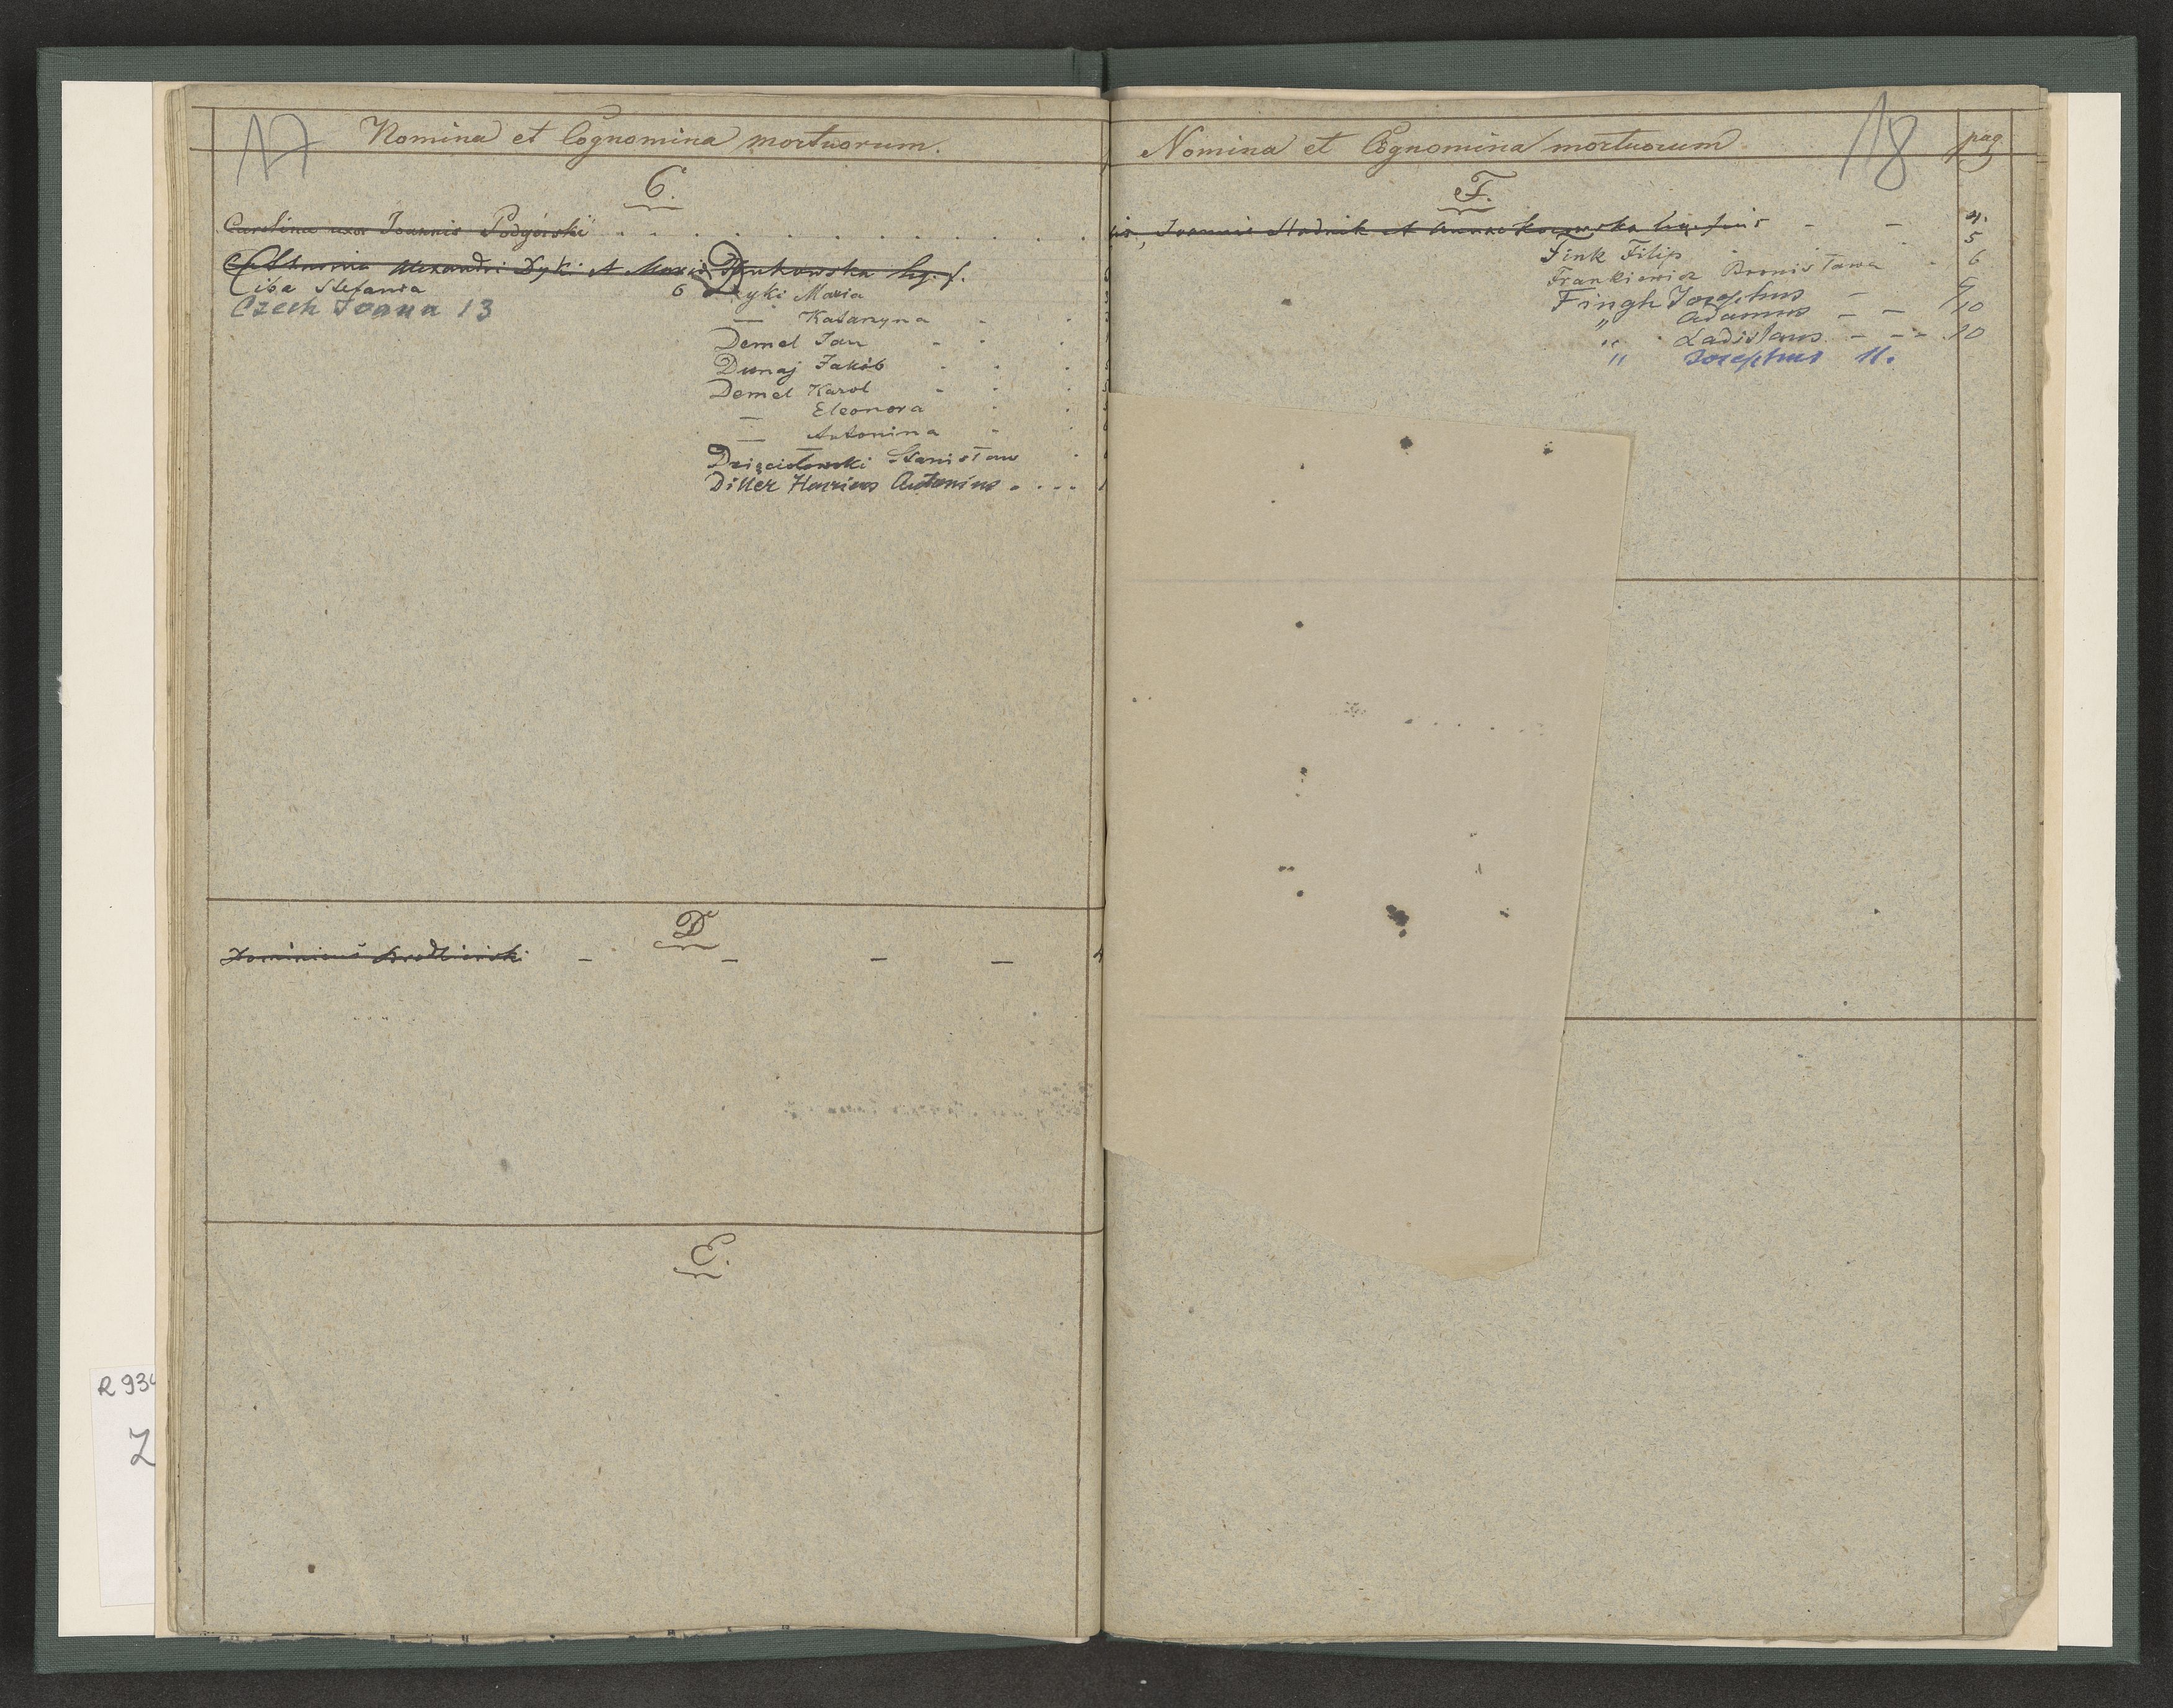 17 Nomina et Cognomina mortuorum.
C.
Carolina uxor Joannis Podgórski
Catharina Alexandri Dyki et Maria leg. f.
Ciba Stefania 6
Czech Joana 13
D
Dyki Maria
— Katarzyna
Demel Jan
Dunaj Jakób
Demel Karol
— Eleonora
— Antonina
Dzięciołowski Stanisław
Diller Henricus Antonius
D
Dominicus
E.
18 Nomina et Cognomina mortuorum pag
F.
Joannis Stadnik et Annae 4.
Fink Filip 5
Frankiewicz Bronisława 6
Fingh Josephus 9
" Adamus 10
" Ladislaus 10
" Josephus 11.
R 934
Z